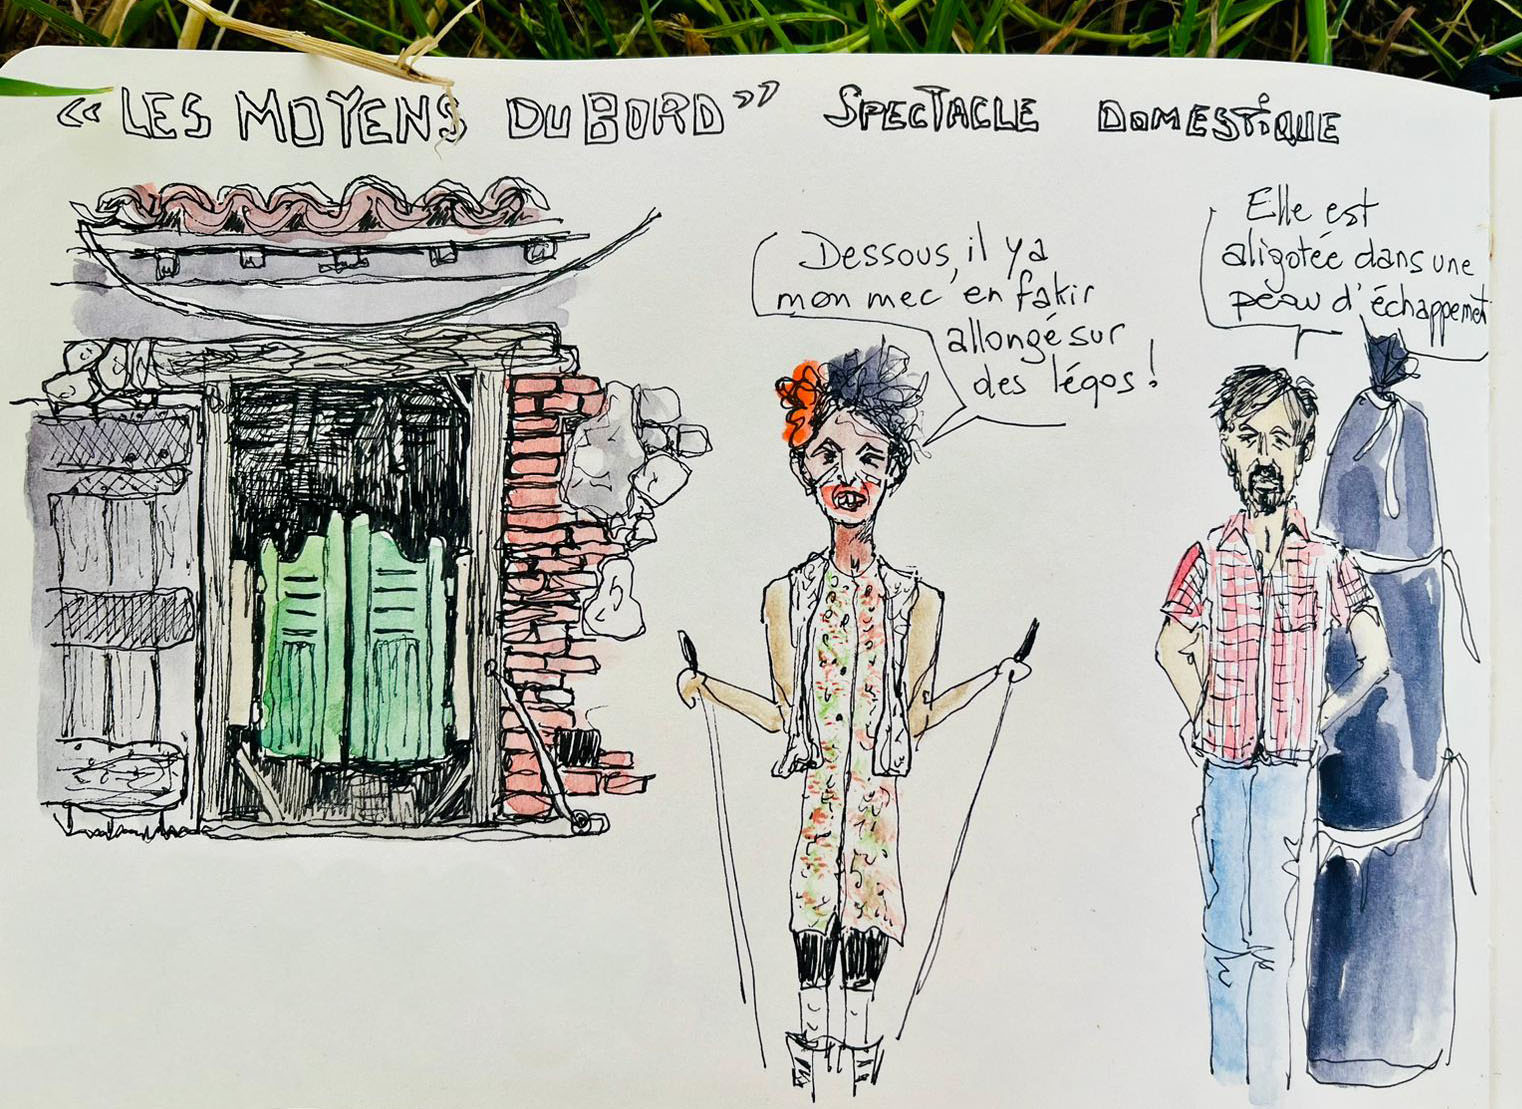 « LES MOYENS DU BORD » SPECTACLE DOMESTIQUE
Dessous, il y a
mon mec en fakir
allongé sur
des légos !
Elle est
aligotée dans une
peau d'échappement